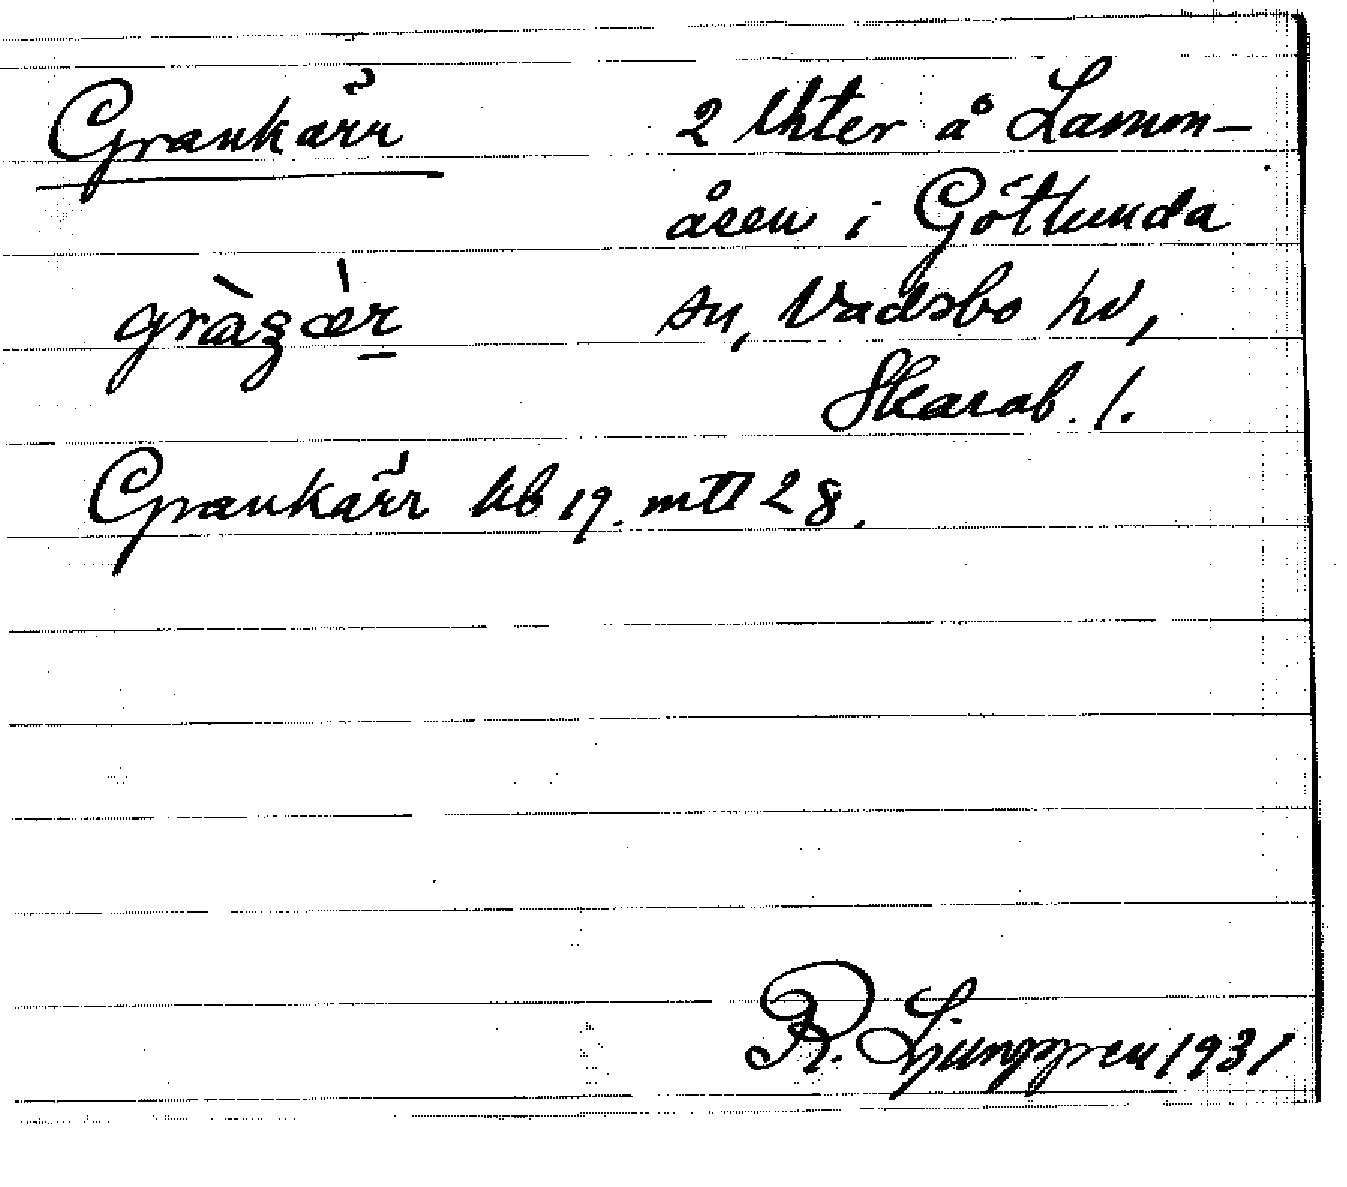 Grankärr 2 lhter å Lamm-
åsen i Götlunda
sn, Vadsbo hd,
Skarab. l.
Grankärr kb 19. mtl 2 8.
R. Ljunggren 1931